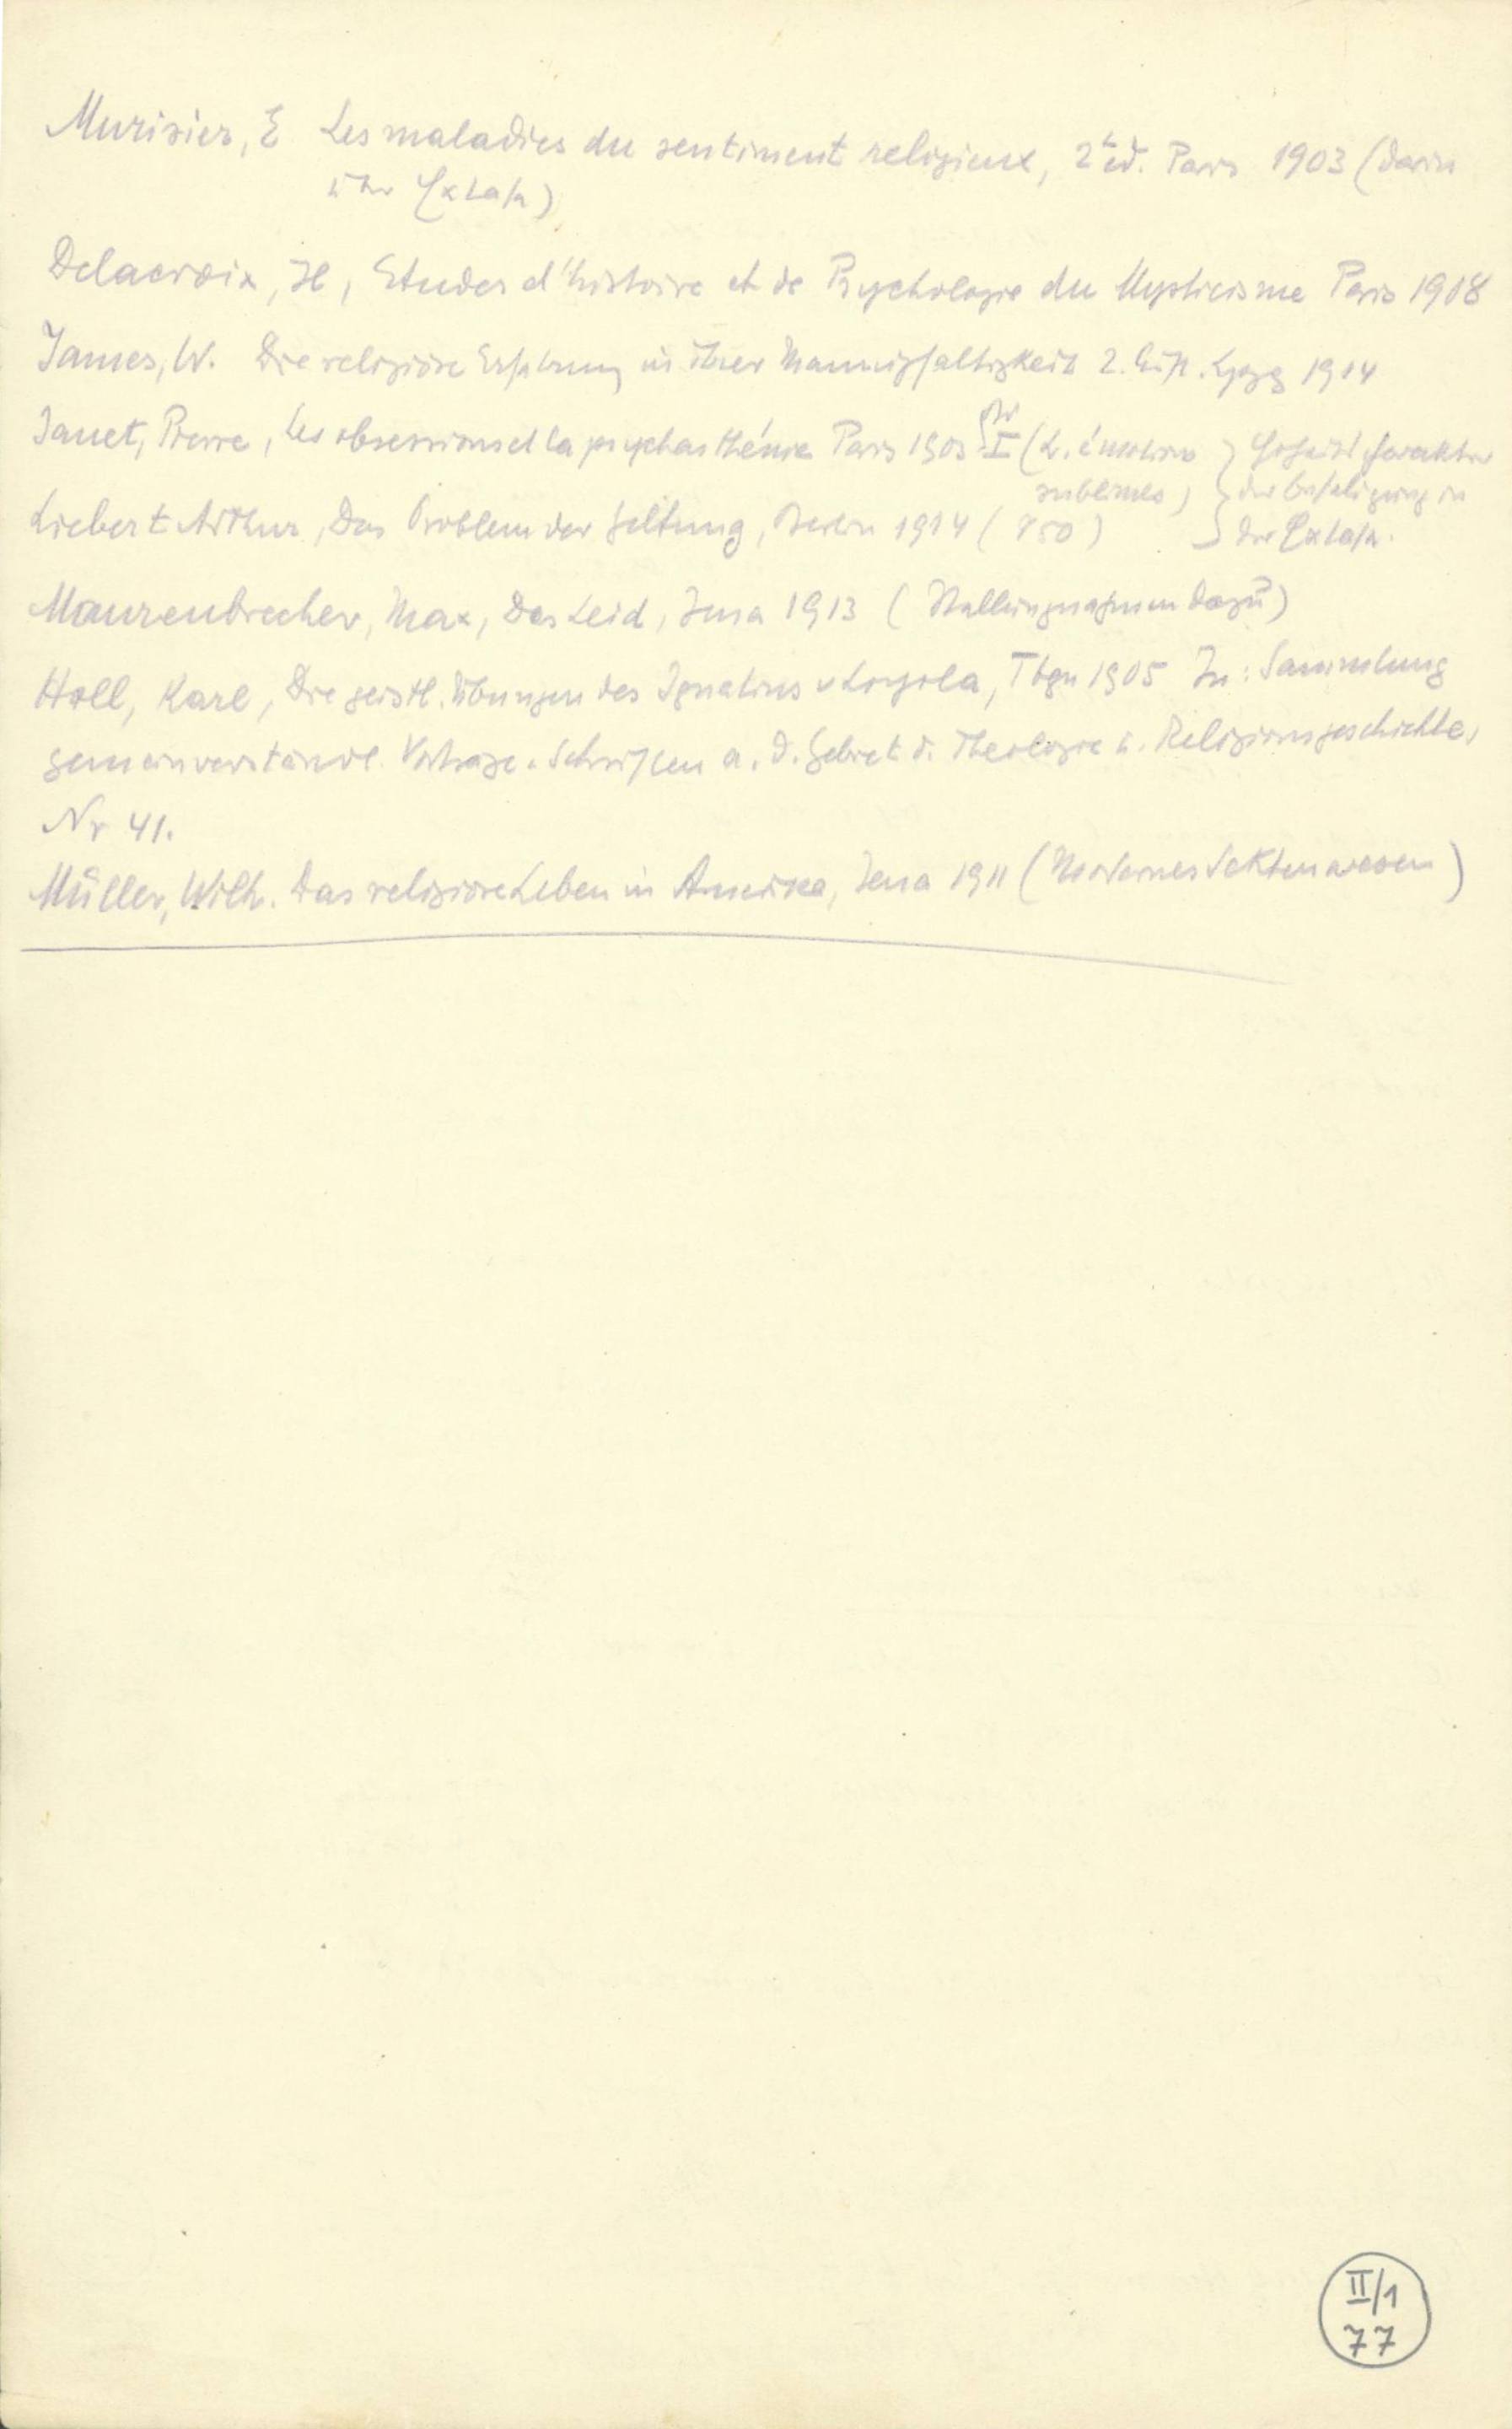 Murisier, E Les maladies du sentiment religieux, 2è éd. Paris 1903 (darin
über Extase)
Delacroix, H, Etudes d'histoire et de Psychologie du Mysticisme Paris 1908
James, W. Die religiöse Erfahrung in ihrer Mannigfaltigkeit 2. Aufl. Lpzg 1914
Janet, Pierre, Les obsessions et la psychasthénie Paris 1903 I (L. émotions
sublimes)
der Beseligung in
der Extase.
Liebert Arthur, Das Problem der Geltung, Berlin 1914 (850)
Maurenbrecher, Max, Das Leid, Jena 1913 (Stellungnahmen dazu)
Holl, Karl, Die geistl. Übungen des Ignatius v Loyola, Tbgn 1905 In: Sammlung
gemeinverständl. Vorträge u. Schriften a. d. Gebiet d. Theologie u. Religionsgeschichte,
Nr 41.
Müller, Wilh. Das religiöse Leben in Amerika, Jena 1911 (Modernes Sektenwesen)
II/1
77